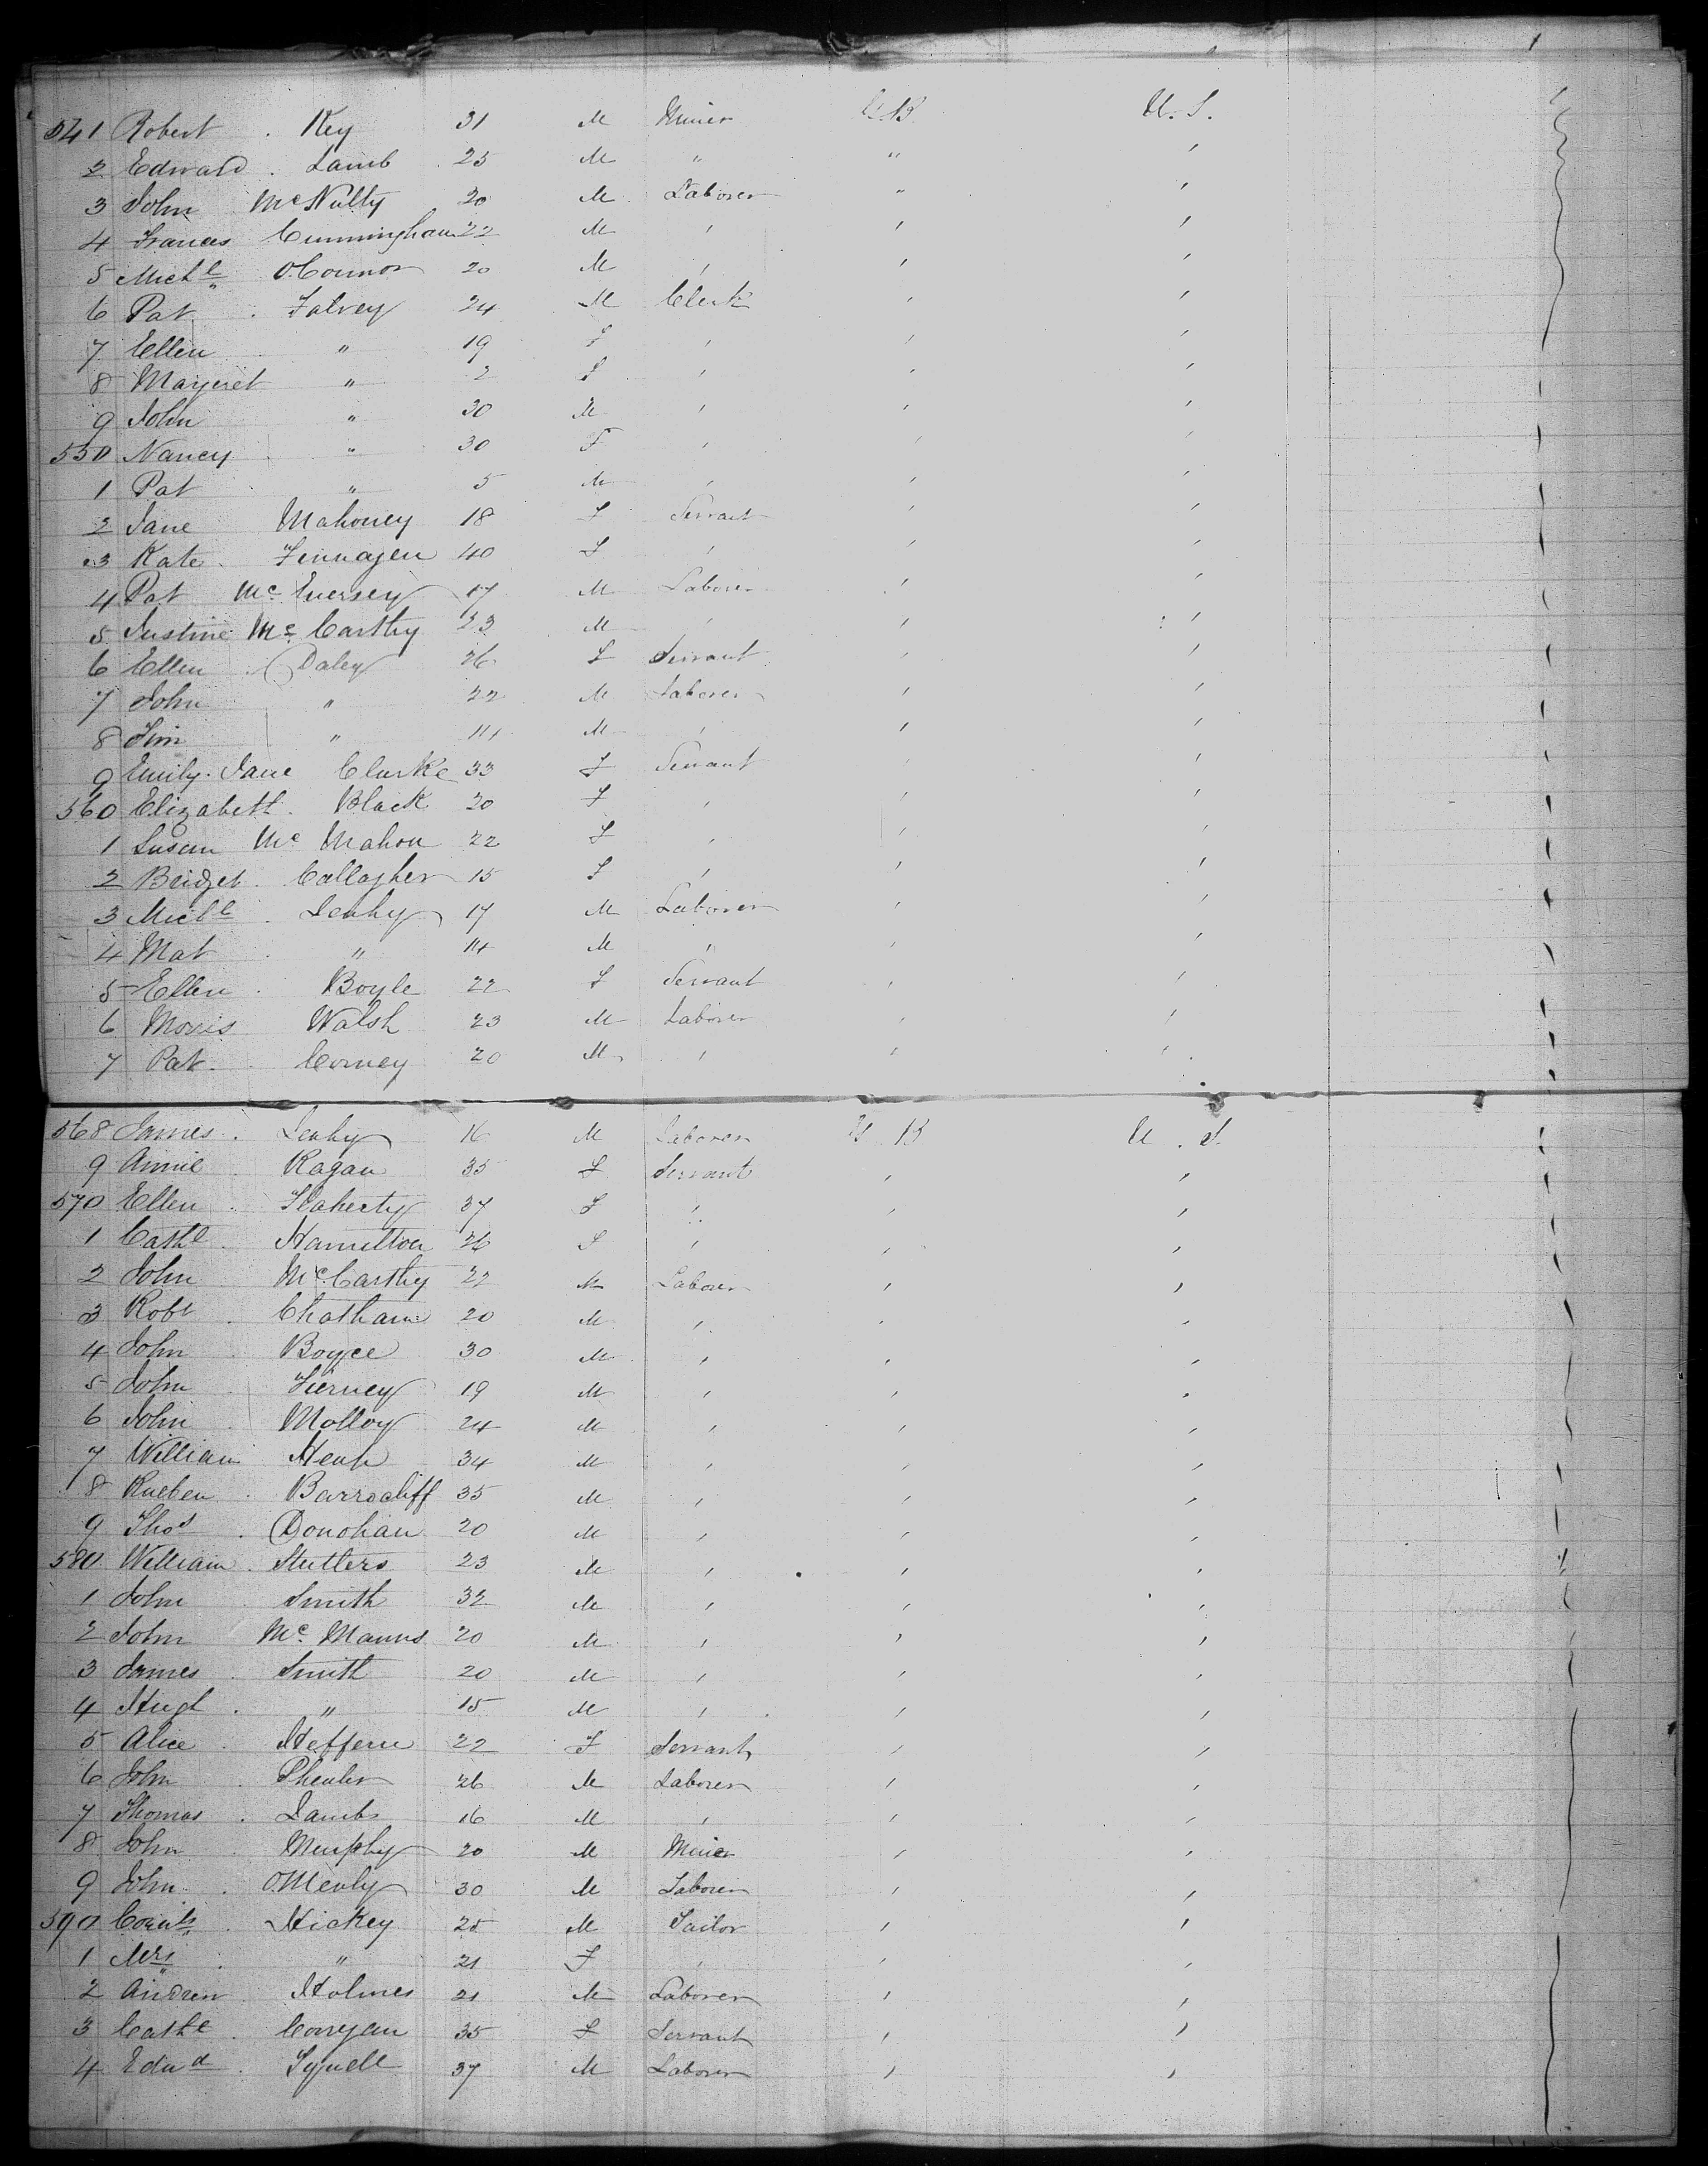 541 Robert . Key 31 M Miner G.B. U.S.
2 Edward . Lamb 25 M " " '
3 John McNulty 20 M Laborer " '
4 Frances Cunningham 22 M ' ' '
5 Michl O'Connor 20 M ' ' '
6 Pat . Falvey 24 M Clerk ' '
7 Ellen " 19 F ' ' '
8 Margeret " 2 F ' ' '
9 John " 30 M ' ' '
550 Nancy " 30 F ' ' '
1 Pat " 5 M ' ' '
2 Jane Mahoney 18 F Servant ' '
3 Kate . Finnagen 40 F ' ' '
4 Pat Mc 17 M Laborer ' '
5 Justine Mc Carthy 23 M ' ' '
6 Ellen Daley 26 F Servant ' '
7 John " 22 M Laborer ' '
8 " M ' ' '
9 Emily Jane Clarke 33 F Servant ' '
560 Elizabeth . Black 20 F ' ' '
1 Susan Mc Mahon 22 F ' ' '
2 Bridget . Gallagher 15 F ' ' '
3 Michl . Leahy 17 M Laborer ' '
4 Mat . " 14 M ' ' '
5 Ellen . Boyle 22 F Servant ' '
6 Morris Walsh 23 M Laborer ' '
7 Pat . Corney 20 M ' ' '
568 James . Leahy 16 M Laborer G.B U.S.
9 Annie . Ragan 35 F Servant ' '
570 Ellen . Flaherty 37 F ' ' '
1 Cathe . Hamilton 26 F ' ' '
2 John McCarthy 22 M Laborer ' '
3 Robt . Chatham 20 M ' ' '
4 John . Boyce 30 M ' ' '
5 John . Tierney 19 M ' ' '
6 John . Molloy 24 M ' ' '
7 William 34 M ' ' '
8 Rueben . Barrocliff 35 M ' ' '
9 Thos . Donohan 20 M ' ' '
580 William . 23 M ' ' '
1 John . Smith 32 M ' ' '
2 John Mc Manus 20 M ' ' '
3 James . Smith 20 M ' ' '
4 Hugh . " 15 M ' ' '
5 Alice . Heffern 22 F Servant ' '
6 John . 26 M Laborer ' '
7 Thomas . Lamb 16 M ' ' '
8 John . Murphy 20 M Miner ' '
9 John . 30 M Laborer ' '
590 . Hickey 25 M Tailor ' '
1 Mrs . " 21 F ' ' '
2 Andrew . Holmes 21 M Laborer ' '
3 Cathe . Corrgan 35 F Servant ' '
4 Edwd . 37 M Laborer ' '